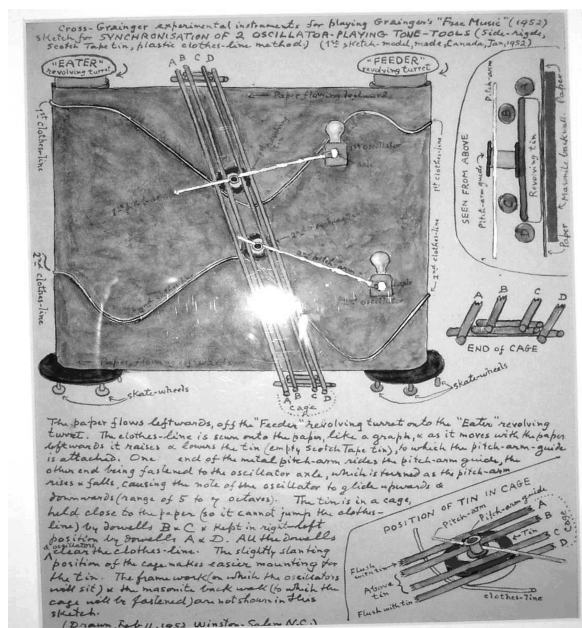 Cross-Grainger experimental instruments for playing Grainger's "Free Music" (1952)
Sketch for SYNCHRONISATION OF 2 OSCILLATOR-PLAYING TONE-TOOLS (Side-rigde,
Scotch Tape tin, plastic clothes-line method) (1st sketch-model, made, Canada, Jan, 1952)
"EATER"
revolving turret
A B C D
"FEEDER"
revolving turret
Paper flowing leftward
1st clothes-line
1st oscillator
1st clothes-line
2nd clothes-line
2nd clothes-line
oscillator
Paper flowing leftwards
skate-wheels
A B C D
cage
skate-wheels
Pitch-arm
Pitch-arm guide
A
B
C
D
Revolving tin
Paper
Masonite backwall
Paper
SEEN FROM ABOVE
A B C D
END OF CAGE
The paper flows leftwards, off the "Feeder" revolving turret onto the "Eater" revolving
turret. The clothes-line is sewn onto the paper, like a graph, & as it moves with the paper
leftwards it raises & lowers the tin (empty Scotch Tape tin), to which the pitch-arm-guide
is attached. One end of the metal pitch-arm rides the pitch-arm guide, the
other end being fastened to the oscillator axle, which is turned as the pitch-arm
rises & falls, causing the note of the oscillator to glide upwards &
downwards (range of 5 to 7 octaves). The tin is in a cage,
held close to the paper (so it cannot jump the clothes-
line) by dowells B & C & kept in right-left
position by dowells A & D. All the dowells
clear the clothes-line. The slightly slanting
position of the cage makes easier mounting for
the tin. The framework (on which the oscillators
will sit) & the masonite back wall (to which the
cage will be fastened) are not shown in this
sketch.
(Drawn, Feb 11, 1952, Winston-Salem N.C.)
& oscillators
POSITION OF TIN IN CAGE
Pitch-arm
Pitch-arm guide
Tin
A
B
C
D
Cage
Flush with tin
Above tin
Flush with tin
clothes-line